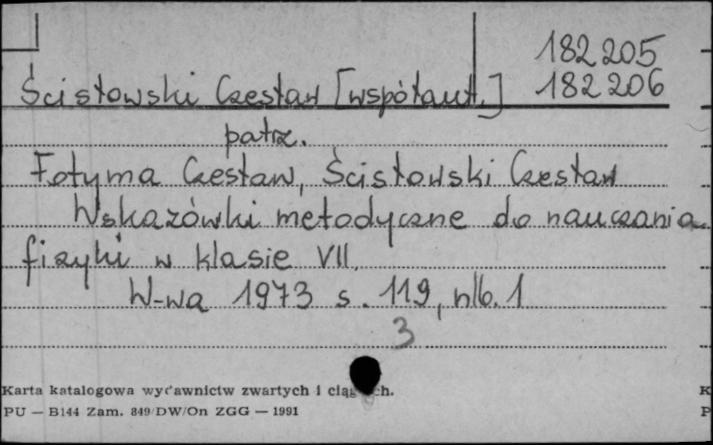 182 205
Ścisłowski Czesław [współaut.] 182 206
patrz.
Fotyma Czesław, Ścisłowski Czesław
Wskazówki metodyczne do nauczania
fizyki w klasie VII.
W-wa 1973 s. 119, nlb. 1
3
Karta katalogowa wydawnictw zwartych i ciągłych.
PU — B144 Zam. 849/DW/On ZGG — 1991
K
P